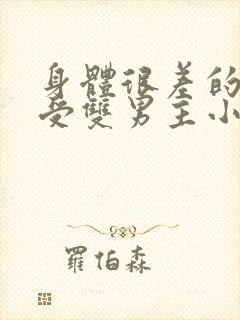 身體很差的
受雙男主小
羅伯森